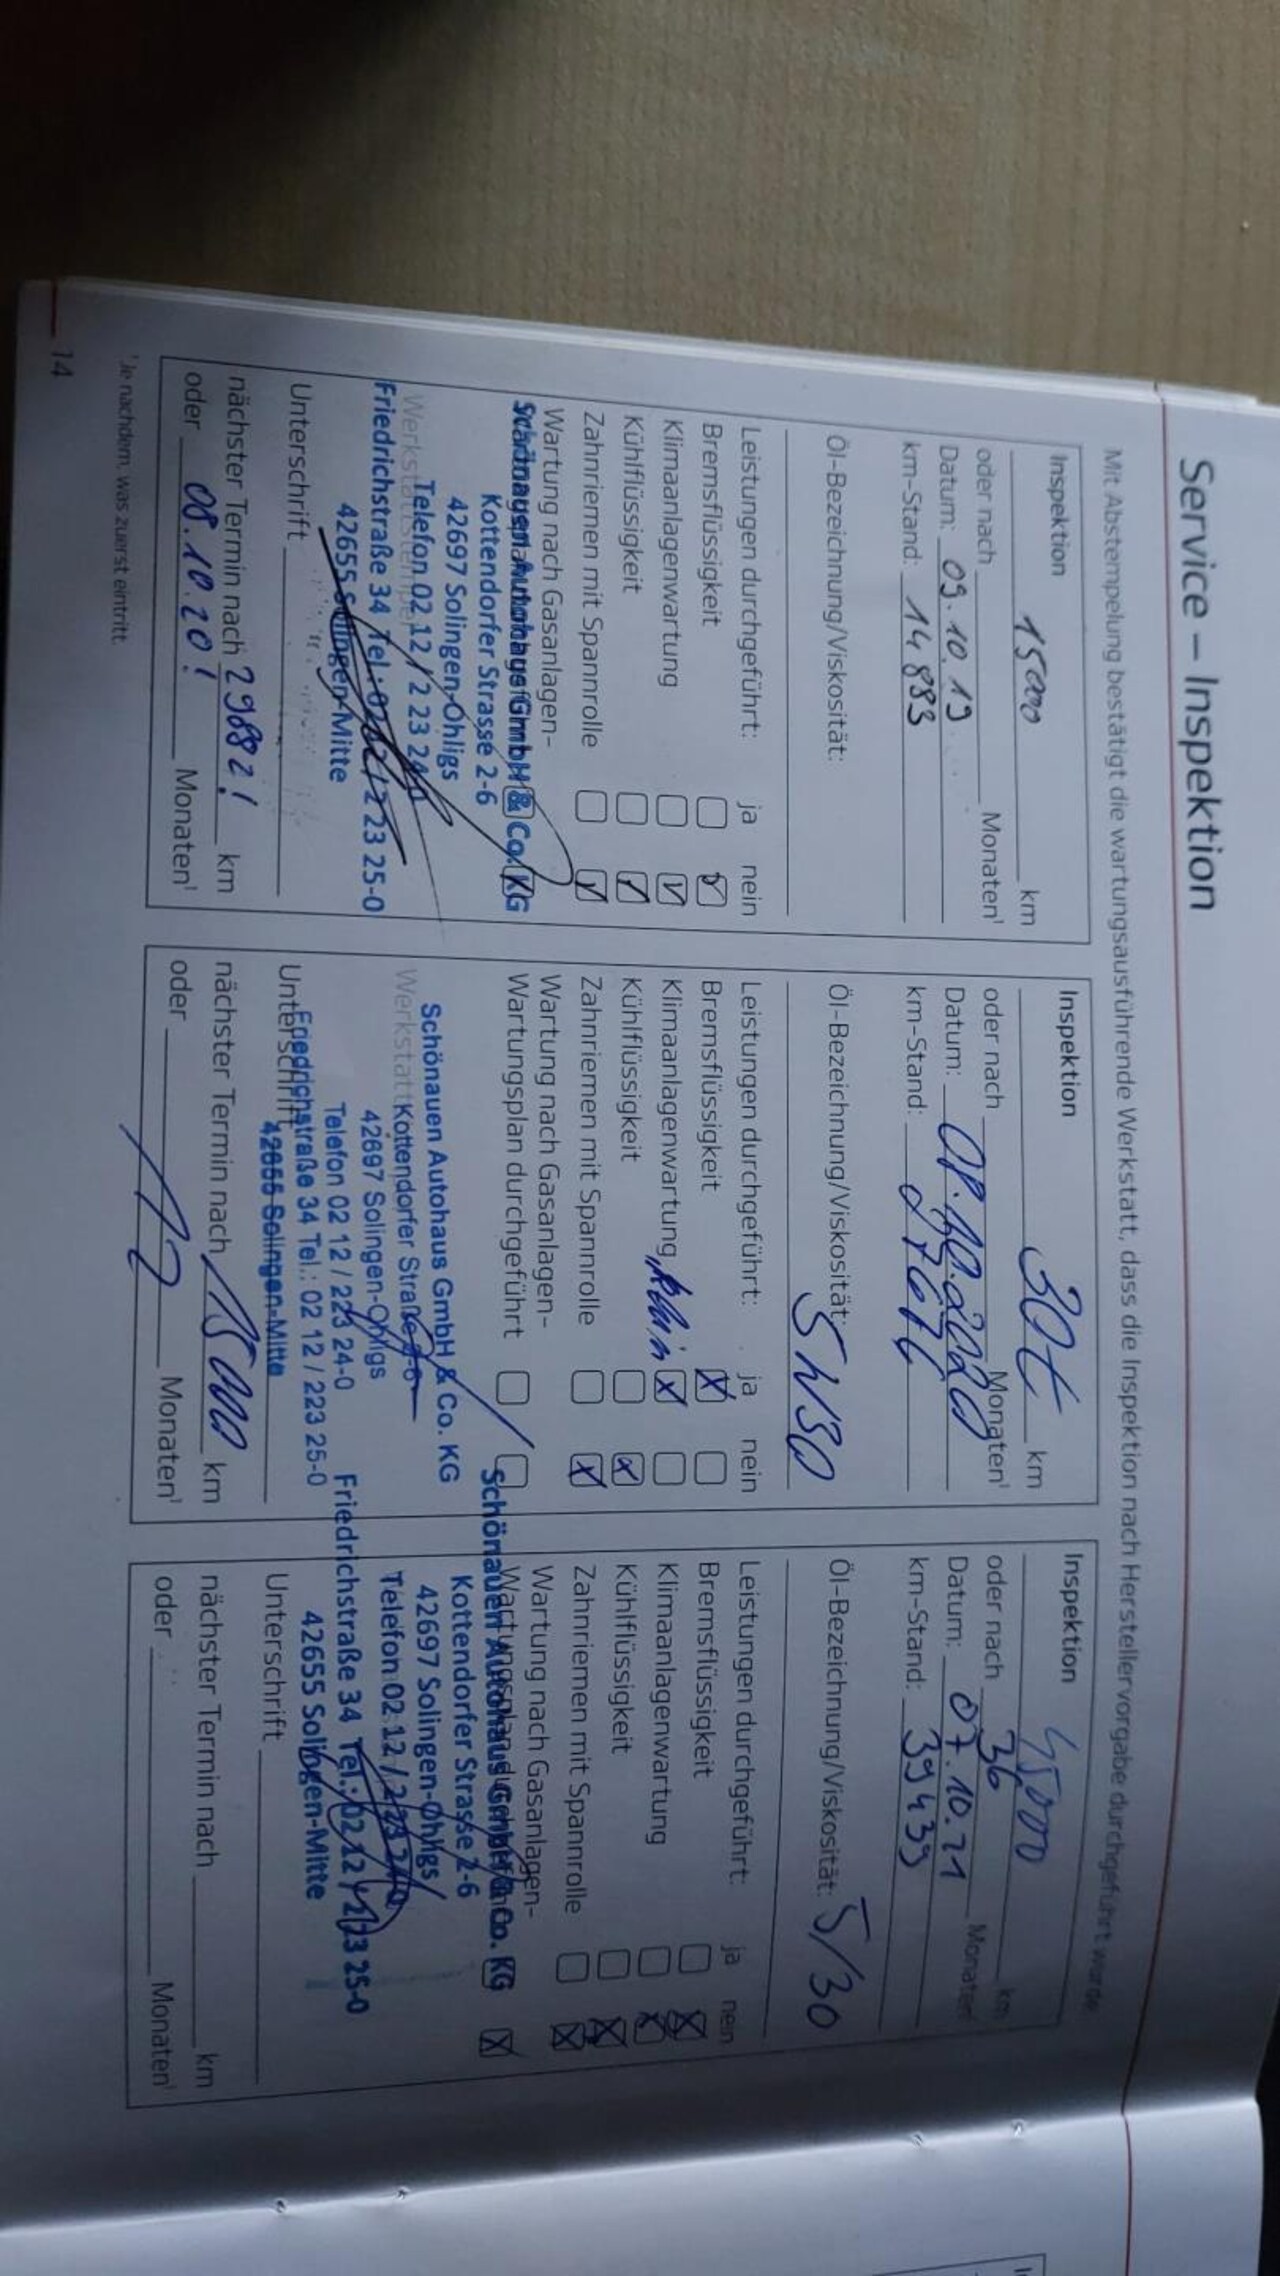 Service – Inspektion
Mit Abstempelung bestätigt die wartungsausführende Werkstatt, dass die Inspektion nach Herstellervorgabe durchgeführt wurde
Inspektion
15000 km
oder nach Monaten¹
Datum: 09.10.19
km-Stand: 14883
Öl-Bezeichnung/Viskosität:
Leistungen durchgeführt: ja nein
Bremsflüssigkeit
Klimaanlagenwartung
Kühlflüssigkeit
Zahnriemen mit Spannrolle
Wartung nach Gasanlagen-
Schönauen Autohaus GmbH & Co. KG
Kottendorfer Strasse 2-6
42697 Solingen-Ohligs
Telefon 02 12 / 2 23 24-0
Werkstattstempel
Friedrichstraße 34 Tel.: 02 12 / 2 23 25-0
42655 Solingen-Mitte
Unterschrift
nächster Termin nach 29882! km
oder 08.10.20! Monaten¹
Inspektion
30t km
oder nach Monaten¹
Datum: 08.10.2020
km-Stand:
Öl-Bezeichnung/Viskosität: 5W30
Leistungen durchgeführt: ja nein
Bremsflüssigkeit
Klimaanlagenwartung "klein
Kühlflüssigkeit
Zahnriemen mit Spannrolle
Wartung nach Gasanlagen-
Wartungsplan durchgeführt
Schönauen Autohaus GmbH & Co. KG
Werkstatt
Kottendorfer Straße 2-6
42697 Solingen-Ohligs
Telefon 02 12 / 223 24-0
Friedrichstraße 34 Tel.: 02 12 / 223 25-0
42655 Solingen-Mitte
Unterschrift
nächster Termin nach 15000 km
oder 12 Monaten¹
Inspektion
45000 km
oder nach 36 Monaten¹
Datum: 07.10.21
km-Stand: 39439
Öl-Bezeichnung/Viskosität: 5/30
Leistungen durchgeführt: ja nein
Bremsflüssigkeit
Klimaanlagenwartung
Kühlflüssigkeit
Zahnriemen mit Spannrolle
Wartung nach Gasanlagen-
Wartungsplan durchgeführt
Schönauen Autohaus GmbH & Co. KG
Kottendorfer Strasse 2-6
42697 Solingen-Ohligs
Telefon 02 12 / 2 23 24-0
Friedrichstraße 34 Tel.: 02 12 / 2 23 25-0
42655 Solingen-Mitte
Unterschrift
nächster Termin nach km
oder Monaten¹
¹Je nachdem, was zuerst eintritt.
14